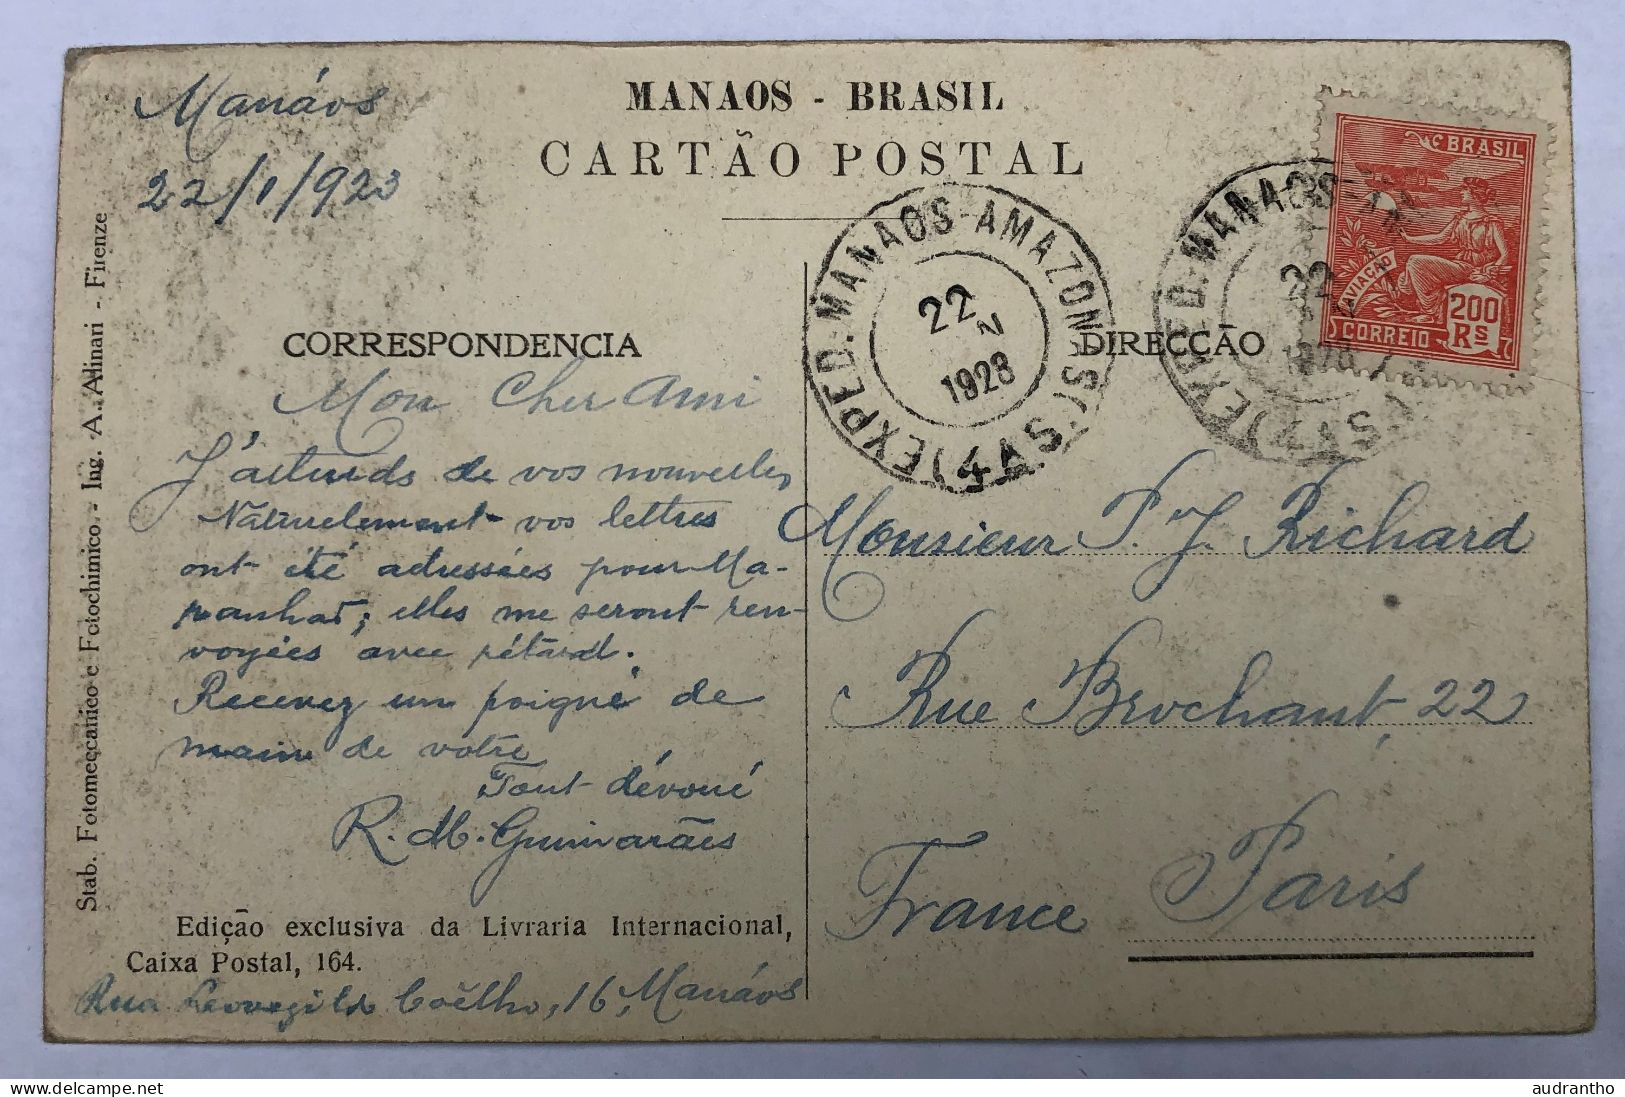 Manáos
22/1/923
MANAOS - BRASIL
CARTÃO POSTAL
BRASIL
AVIAÇÃO
200
CORREIO Rs
EXPED.-MANAOS-AMAZONAS
22
1923
(4AS)
EXPED.-MANAOS-
22
(4AS)
CORRESPONDENCIA
DIRECÇÃO
Mon Cher Ami
J'attends de vos nouvelles,
Naturelement vos lettres
ont été adressées pour Ma-
ranhão; elles me seront ren-
voyées avec rétard.
Recevez un poigné de
main de votre
Tout dévoué
R. M. Guimarães
Edição exclusiva da Livraria Internacional,
Caixa Postal, 164.
Rua Leovegildo Coêlho, 16, Manáos
Monsieur P. J. Richard
Rue Brochant, 22
Paris
France
Stab. Fotomeccanico e Fotochimico. - Ing. A. Alinari - Firenze
delcampe.net
audrantho